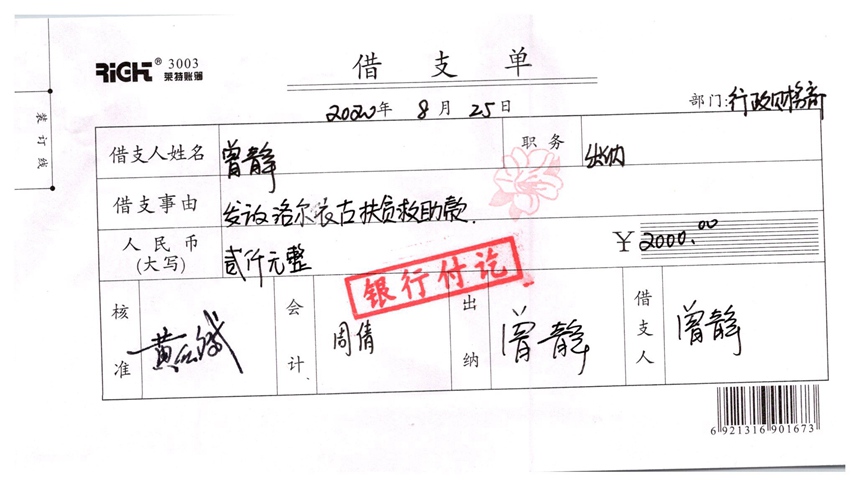 RiGHT® 3003
莱特账簿
借支单
2020年 8月 25日
部门:行政财务部
装订线
借支人姓名 曾静 职务 出纳
借支事由 发放洛尔衣古扶贫救助款.
人民币
(大写) 贰仟元整 ¥2000.00
银行付讫
核准 黄 会计 周倩 出纳 曾静 借支人 曾静
6 921316 901673